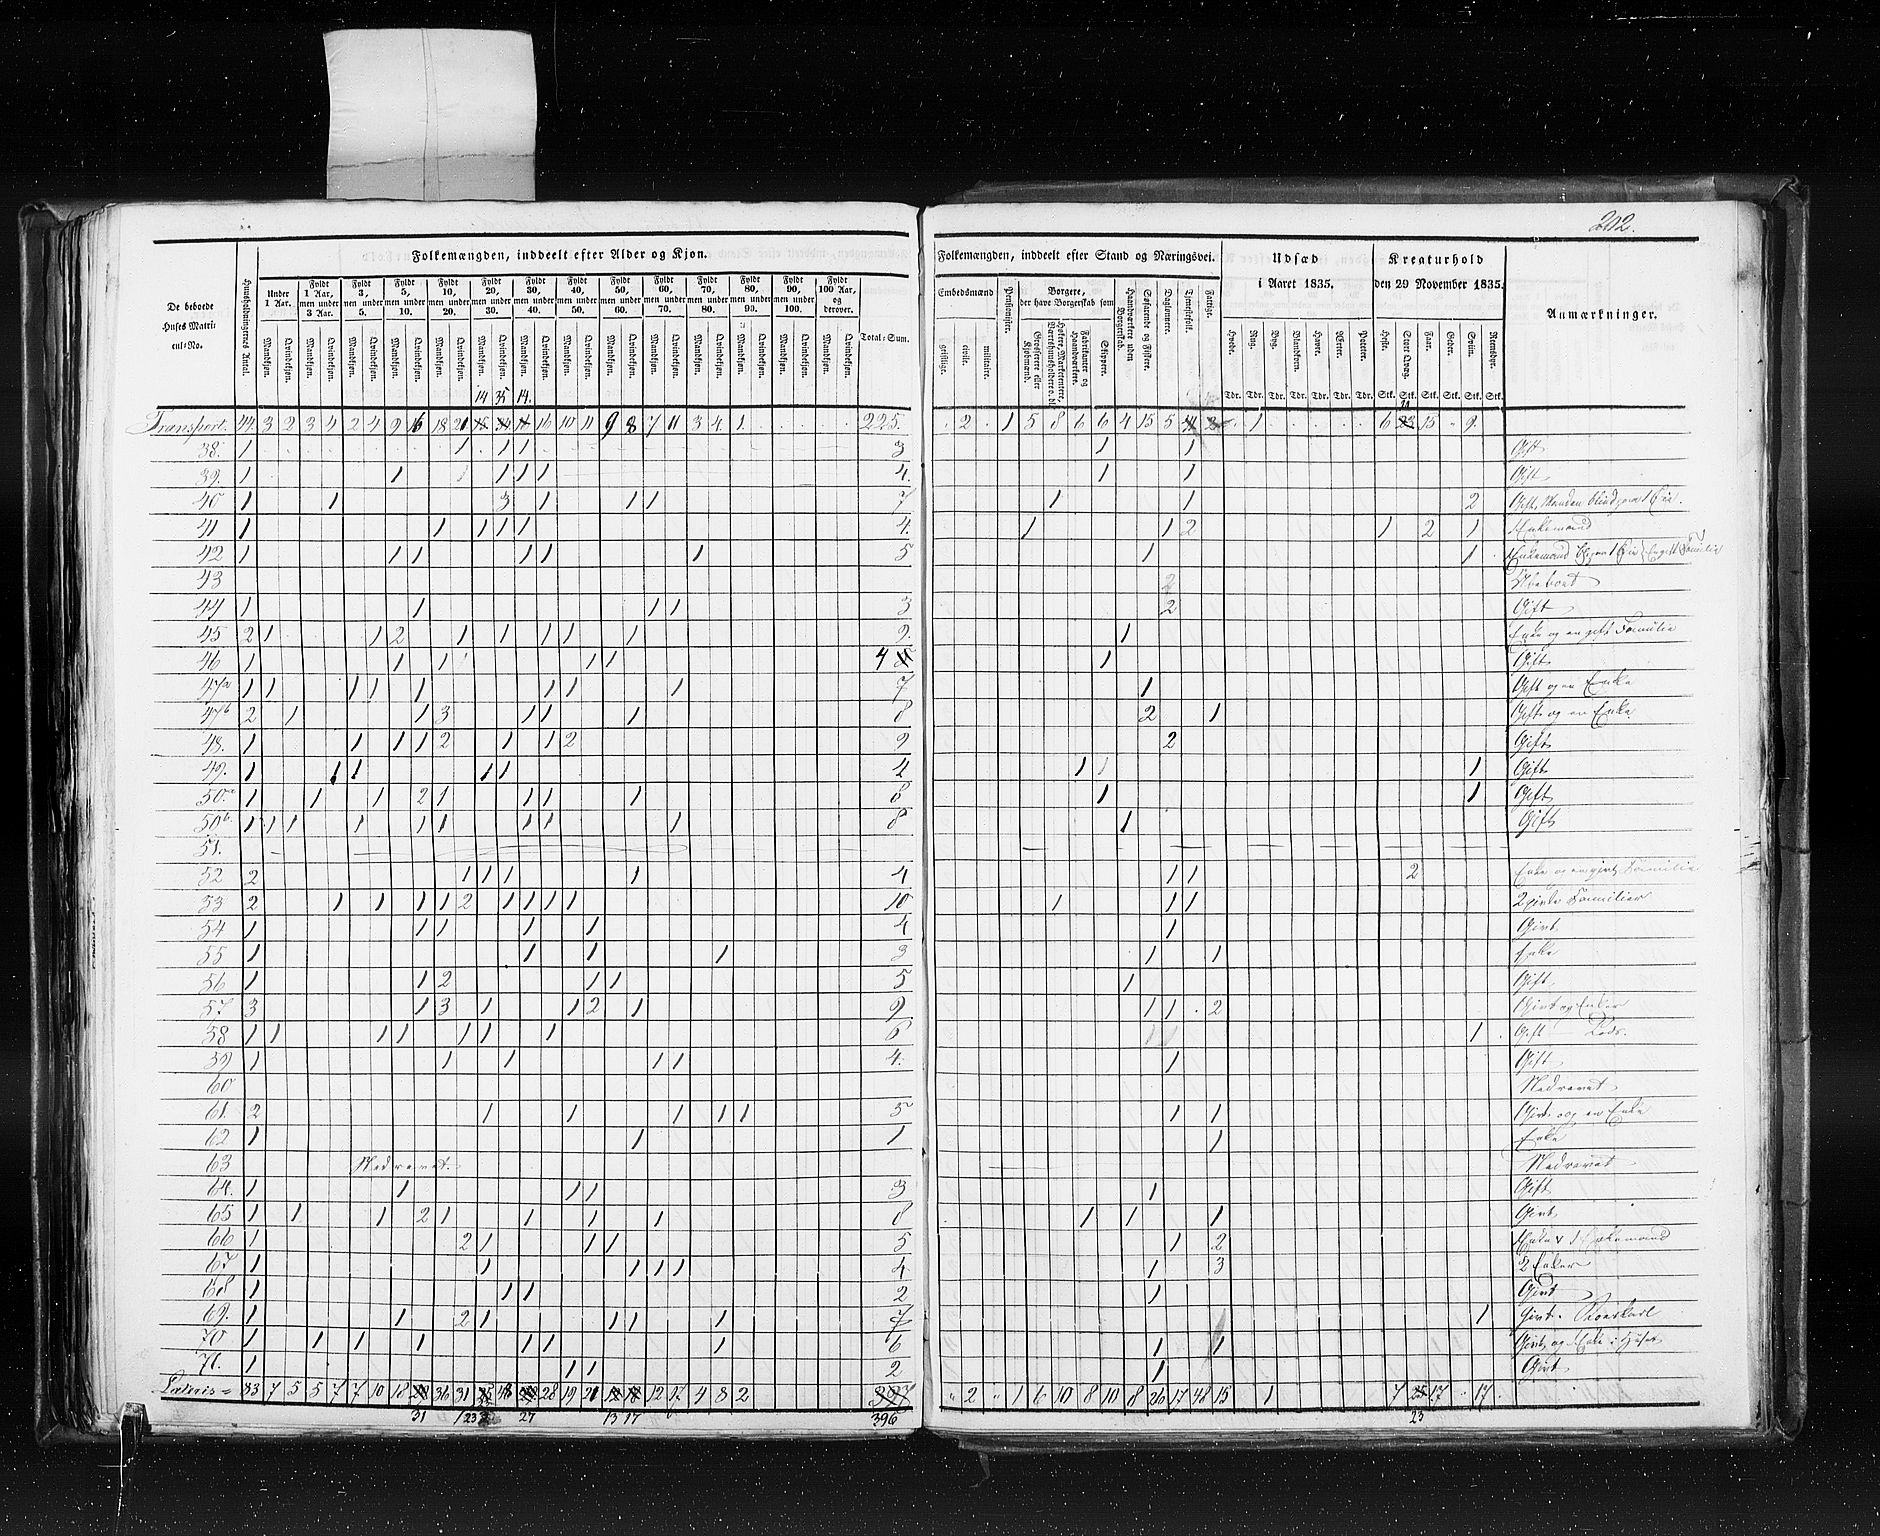 202.
Folkemængden, inddeelt efter Alder og Kjøn.
De beboede Huses Matricul-No.
Huusholdningernes Antal.
Under 1 Aar.
Fyldt 1 Aar, men under 3 Aar.
Fyldt 3, men under 5.
Fyldt 5, men under 10.
Fyldt 10, men under 20.
Fyldt 20, men under 30.
Fyldt 30, men under 40.
Fyldt 40, men under 50.
Fyldt 50, men under 60.
Fyldt 60, men under 70.
Fyldt 70, men under 80.
Fyldt 80, men under 90.
Fyldt 90, men under 100.
Fyldt 100 Aar, og derover.
Mandkjøn. Qvindekjøn.
Total-Sum.
14 35 14.
Transport. 44 3 2 3 4 2 4 9 16 18 21 10 11 9 8 7 11 3 4 1 225.
38. 1 1 1 1 3
39. 1 1 1 1 1 4.
40 1 1 3 1 1 1 7
41 1 1 1 1 1 4.
42 1 1 1 1 1 1 5
43
44 1 1 1 1 3
45 2 1 1 2 1 1 1 1 1 9.
46 1 1 1 1 1 4
47a 1 1 1 1 1 1 1 1 7
47b 2 1 1 3 1 1 1 8
48. 1 1 1 1 2 1 1 2 9
49. 1 1 1 1 1 4
50.a 1 1 1 2 1 1 1 1 8
50b. 1 1 1 1 1 1 1 1 1 8
51.
52 2 1 1 1 1 4.
53 2 1 1 1 1 2 1 1 1 1 10
54 1 1 1 1 1 4
55 1 1 1 1 3
56 1 1 2 1 1 5
57 3 1 3 1 1 2 1 9
58 1 1 1 1 1 1 1 6
59 1 1 1 1 1 4.
60
61. 2 1 1 1 1 1 5
62 1 1 1
63 Nedrevet.
64. 1 1 1 1 3
65 1 1 1 2 1 1 1 1 8
66 1 2 1 1 1 5
67. 1 1 1 1 1 4
68 1 1 1 2
69. 1 1 2 1 1 1 1 7
70 1 1 1 1 1 1 1 6
71. 1 1 1 2
Lateris = 83 7 5 5 7 7 10 18 36 31 48 28 19 21 12 17 4 8 2
31 27 13 17 396
Folkemængden, inddeelt efter Stand og Næringsvei.
Embedsmænd
geistlige. civile. militaire.
Pensionister.
Borgere, der have Borgerskab som
Grosserere eller Kjøbmænd.
Fabrikanter og Haandværkere.
Skippere.
Haandværkere uden Borgerskab.
Søfarende og Fiskere.
Daglønnere.
Tjenestefolk.
Fattige.
Udsæd i Aaret 1835.
Hvede. Rug. Byg. Blandkorn. Havre. Ærter. Poteter.
Tdr. Tdr. Tdr. Tdr. Tdr. Tdr. Tdr.
Kreaturhold den 29 November 1835.
Heste. Stort Qvæg. Faar. Geder. Sviin. Rensdyr.
Stk. Stk. Stk. Stk. Stk. Stk.
Anmærkninger.
2 1 5 8 6 6 4 15 5 1 6 15 9.
1 1 Gift
1 1 Gift
1 1 2 Gift, Manden blind paa 1 Øie.
1 1 2 1 2 1 Enkemand
1 1 Enkemand
2 Ubeboet
2 Gift
1 Enke og en gift Familie
1 Gift
1 Gift og en Enke
2 1 Gift og en Enke
2 Gift
1 1 1 Gift
1 1 Gift
1 Gift
1 1 2 Enke og en givt Familie
1 1 1 2 givte Familier
1 Givt
1 1 Enke
1 Gift
1 1 2 Givt og Enker
1 1 1 Gift Lods.
1 Gift
Nedrevet
1 1 Givt og en Enke
1 Enke
Nedrevet
1 Gift
1 1 1 Givt
1 2
1 3 2 Enker
1 Givt
1 Givt.
1 1 Givt og Enke i Huset
1 Givt
2 1 6 10 8 10 8 26 17 48 15 1 7 17 17.
23